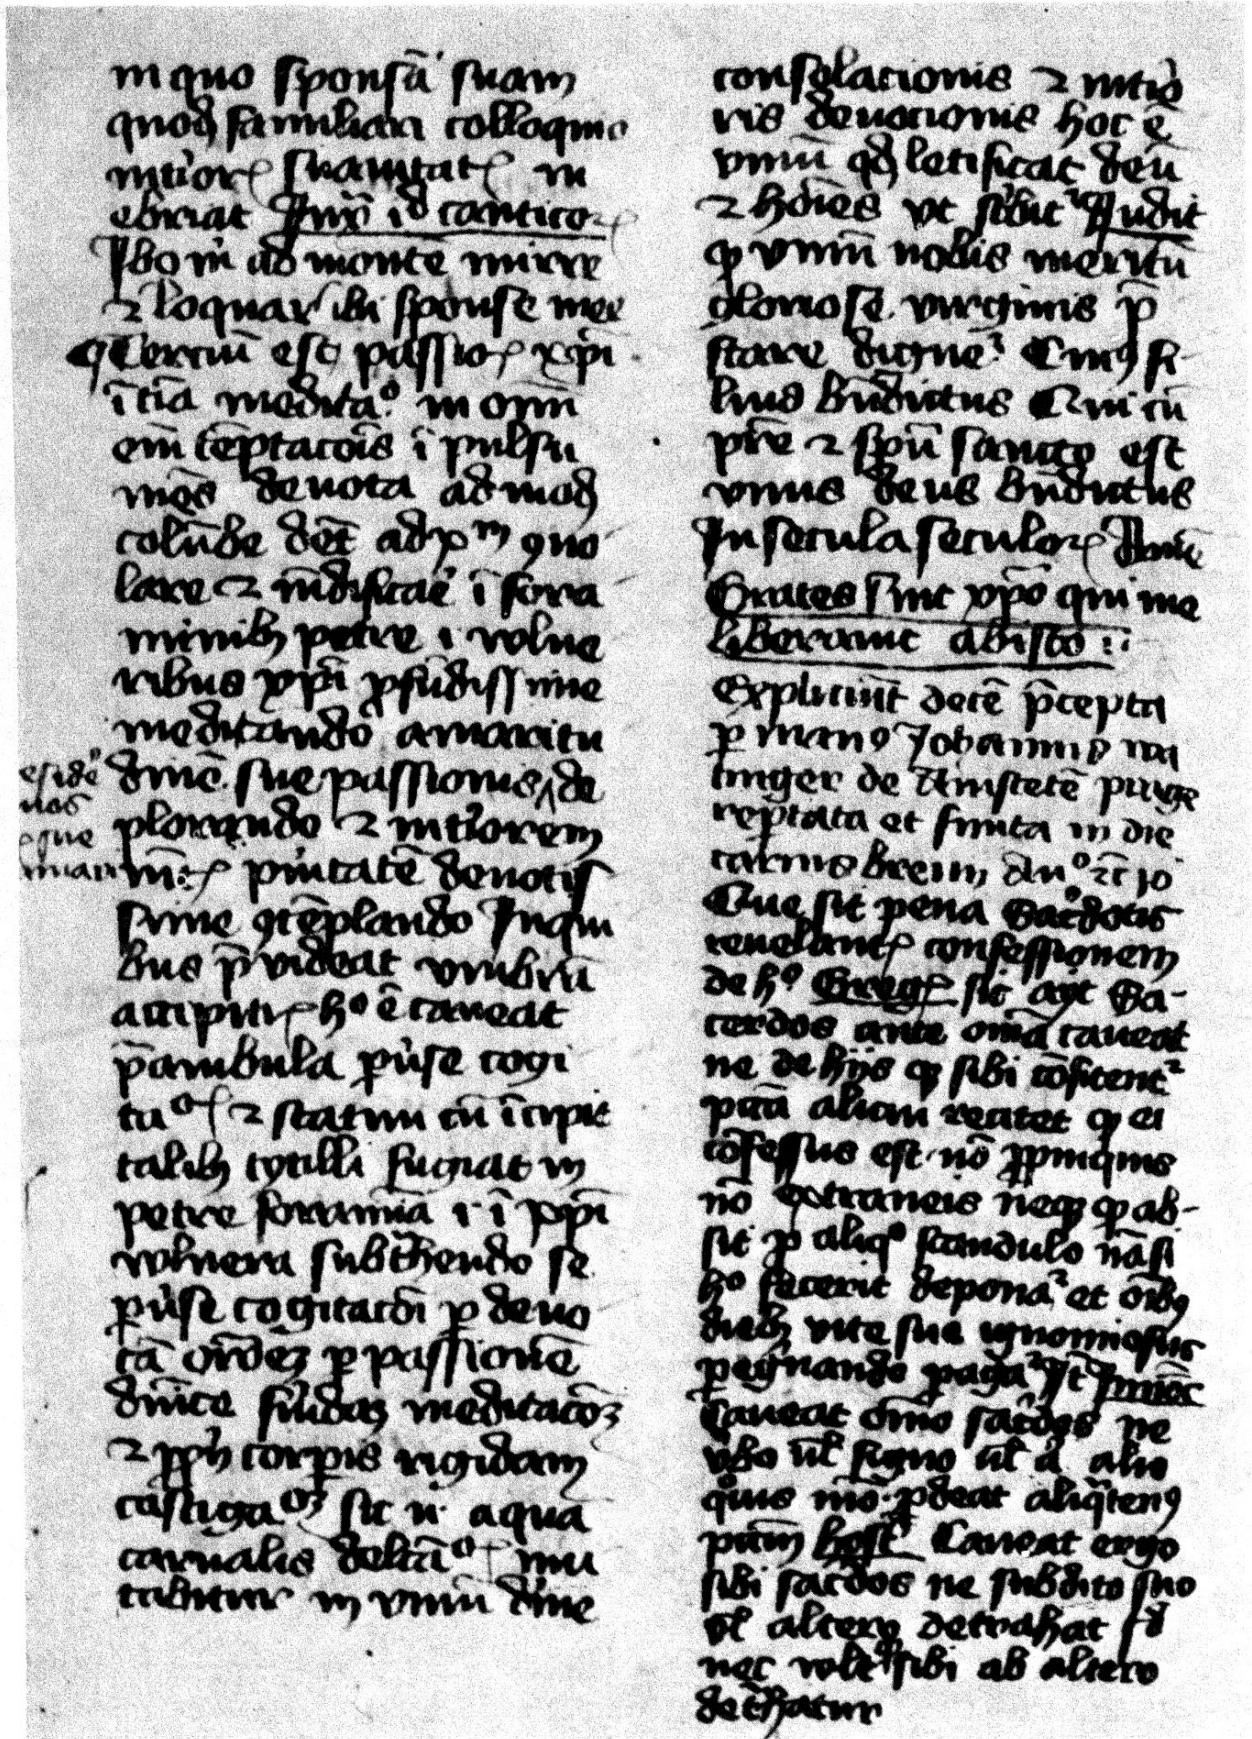 in quo sponsā suam
quodā familiari colloquio
int'iorꝭ suauitatꝭ in
ebriat Jux̄ iđ canticoꝝ
Jbo m̄ ad montē mirre
⁊ loquar ibi sponse mee
Terciū est passioꝭ xp̄i
ītīa meditaᵒ. in omī
em̄ tēptacōis īpulsu
mēs deuota ad modū
colūbe dēt ad xᵐ ꝯuo
lare ⁊ nīdificāe ī fora
minibꝫ petre .i. vulne
ribus xp̄i ꝓfūdissime
meditando amaritu
dīnē sue passionis de
plorando ⁊ int'iorem
puritatē deuotis
sime ꝯtēplando Jn qui
bus p̄uideat vmbrā
accipitꝭ hᵒ ē caueat
p̄ambula ꝑu'se cogi
tᵒꝭ ⁊ statim cū īcipit
talibꝫ fugiat in
petre foramīa .i. ī xp̄i
vulnera subt̄hendo se
ꝑu'se cogitacōi ꝑ deuo
tā orōeꝫ ꝑ passionē
dn̄ice meditacōꝫ
⁊ ꝓpͥ corꝑis rigidam
castigaᵒꝫ sic n̄. aqua
carnalis delctāᵒꝭ mu
tabitur in vinū dīne
esidēᵒ
consolacionis ⁊ int'io
ris deuocionis hoc ē
vinū qđ letificat deū
⁊ hoīes vt sc'bit' Judic̄
ꝙ vinū nobis meritū
gloriose virginis p̄
stare dignet᷑ Cuiꝰ fi
lius bn̄dictus Qui cū
pr̄e ⁊ sp̄u sancto est
vnus deus bn̄dictus
Jn secula seculoꝝ Amē
Grates sint xp̄o qui me
liberauit ab isto ::
Expliciūt decē p̄cepta
ꝑ manꝰ Johannis na
tinger de Amstetē
reportata et finita in die
Que sit pena sac̄dotis
reuelantꝭ confessionem
de hᵒ Gregꝭ sic ayt Sa-
cerdos ante omīa caueat
ne de hijs ꝗ sibi cōfitent᷑
pctā alicui recitet ꝙ ei
cōfessus est nō ꝓpinquis
nō extraneis neqꝫ ꝙ ab-
sit ꝓ aliqᵒ scandulo nā si
hᵒ fecerit deponat᷑ et oībꝫ
diebꝫ vite sue ignomiosus
ꝑegrinando ꝑagat᷑ Jt̄ Jnnoc̄
Caueat om̄o sac̄dos ne
v̄bo ul̄ signo ul̄ a' alio
qͦuis mō ꝓdeat aliqͣtenꝰ
host' Caueat ergo
sibi sac̄dos ne subdito suo
vl̄ alteri detrahat sꝫ
nec volt sibi ab altero
det̄hatur